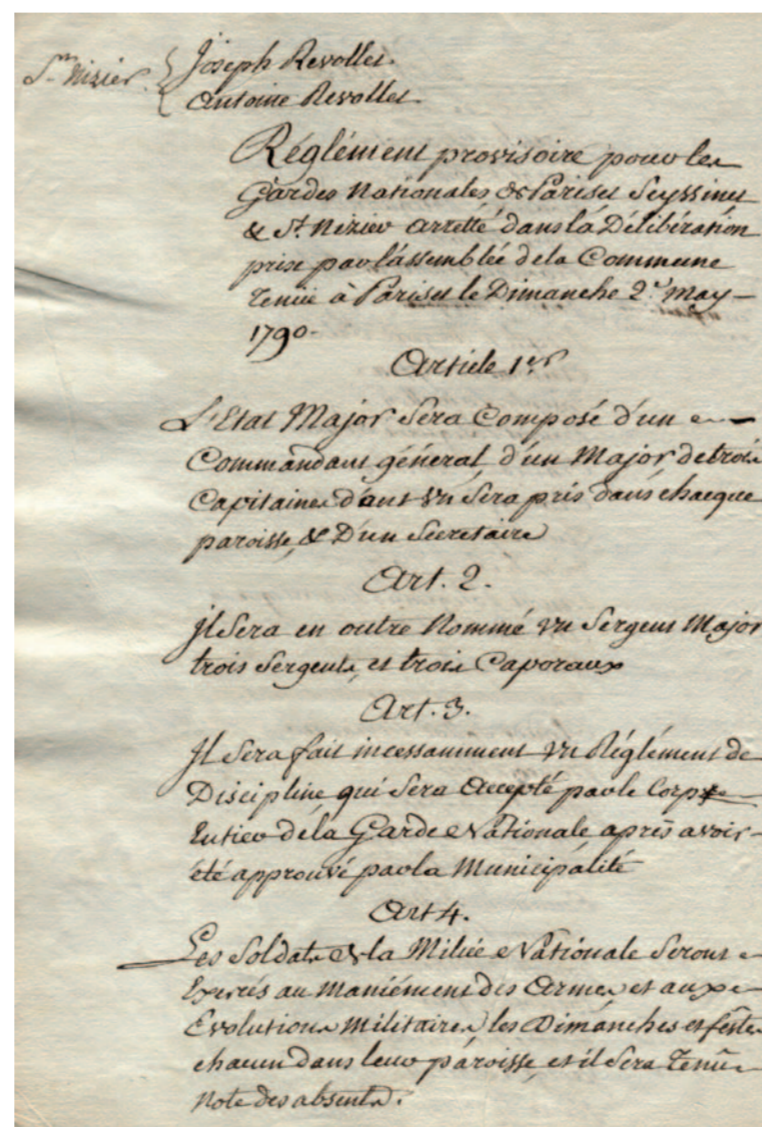 St Nizier { Joseph Revollet.
Antoine Revollet.
Réglément provisoire pour les
Gardes Nationales de Pariset Seyssinet
& St. Nizier arretté dans la Délibération
prise par l'assemblée de la Commune
tenüe à Pariset le Dimanche 2e. May
1790.
Article 1er
L'Etat Major Sera Composé d'un
Commandant général, d'un Major, de trois
Capitaines d'ont un Sera pris dans chaeque
paroisse, & D'un Secretaire
Art. 2.
Jl Sera en outre Nommé un Sergent Major
trois Sergents, et trois Caporaux
Art. 3.
Jl Sera fait incessamment un Réglément de
Discipline, qui Sera Accepté par le Corps
Entier de la Garde Nationale après avoir
été approuvé par la Municipalité
Art 4.
Les Soldats de la Milice Nationale Seront
Exercés au Maniément des Armes et aux
Evolutions Militaires, les Dimanches et festes
chacun dans leur paroisse, et il Sera tenüe
Note des absents.